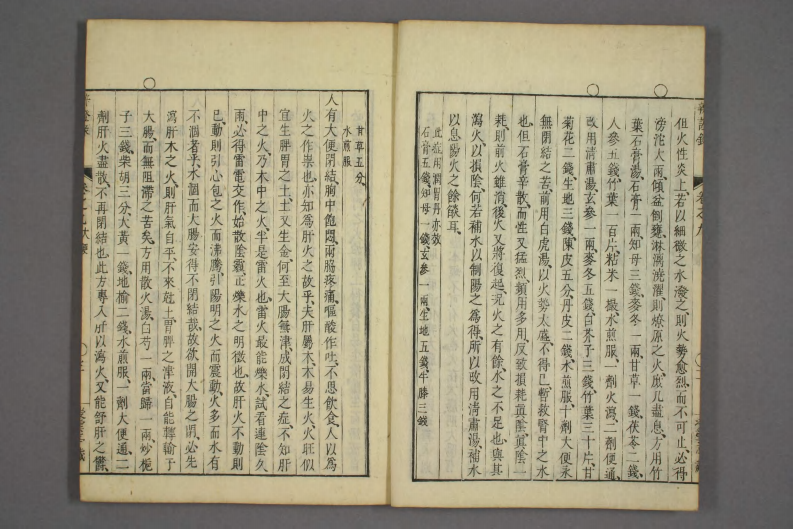 但火性炎上若以細微之水潑之則火勢愈烈而不可止必得
滂沱大雨傾盆倒甕淋漓澆濯則燎原之火庶几盡息方用竹
葉石膏湯石膏一兩知母三錢麥冬一兩甘草一錢茯苓二錢
人參五錢竹葉一百片粘米一撮水煎服一劑火瀉二劑便通
改用清肅湯玄參一兩麥冬五錢白芥子三錢竹葉三十片甘
菊花二錢生地三錢陳皮五分丹皮二錢水煎服十劑大便永
無閉結之苦前用白虎湯以火勢太盛不得已暫救胃中之水
也但石膏辛散而性又猛烈頻用多用反致損耗真陰真陰一
耗則前火雖消後火又將復起况火之有餘水之不足也與其
瀉火以損陰何若補水以制陽之為得所以改用清肅湯補水
以息陽火之餘燄耳
此症用潤胃丹亦效
石膏五錢知母一錢玄參一兩生地五錢牛膝三錢
甘草五分
水煎服
人有大便閉結胸中飽悶兩脇疼痛嘔酸作吐不思飲食人以為
火之作祟也亦知為肝火之故乎夫肝屬木木易生火火旺似
宜生脾胃之土土又生金何至大腸無津成閉結之症不知肝
中之火乃木中之火半是雷火也雷火最能爍水試看連陰久
雨必得雷電交作始散陰霾正爍水之明徵也故肝火不動則
已動則引心包之火而沸騰引陽明之火而震動火多而水有
不涸者乎水涸而大腸安得不閉結哉故欲開大腸之閉必先
瀉肝木之火則肝氣自平不來尅土胃脾之津液自能轉輸于
大腸而無阻滯之苦矣方用散火湯白芍一兩當歸一兩炒梔
子三錢柴胡三分大黃一錢地榆二錢水煎服一劑大便通二
劑肝火盡散不再閉結也此方專入肝以瀉火又能舒肝之鬱